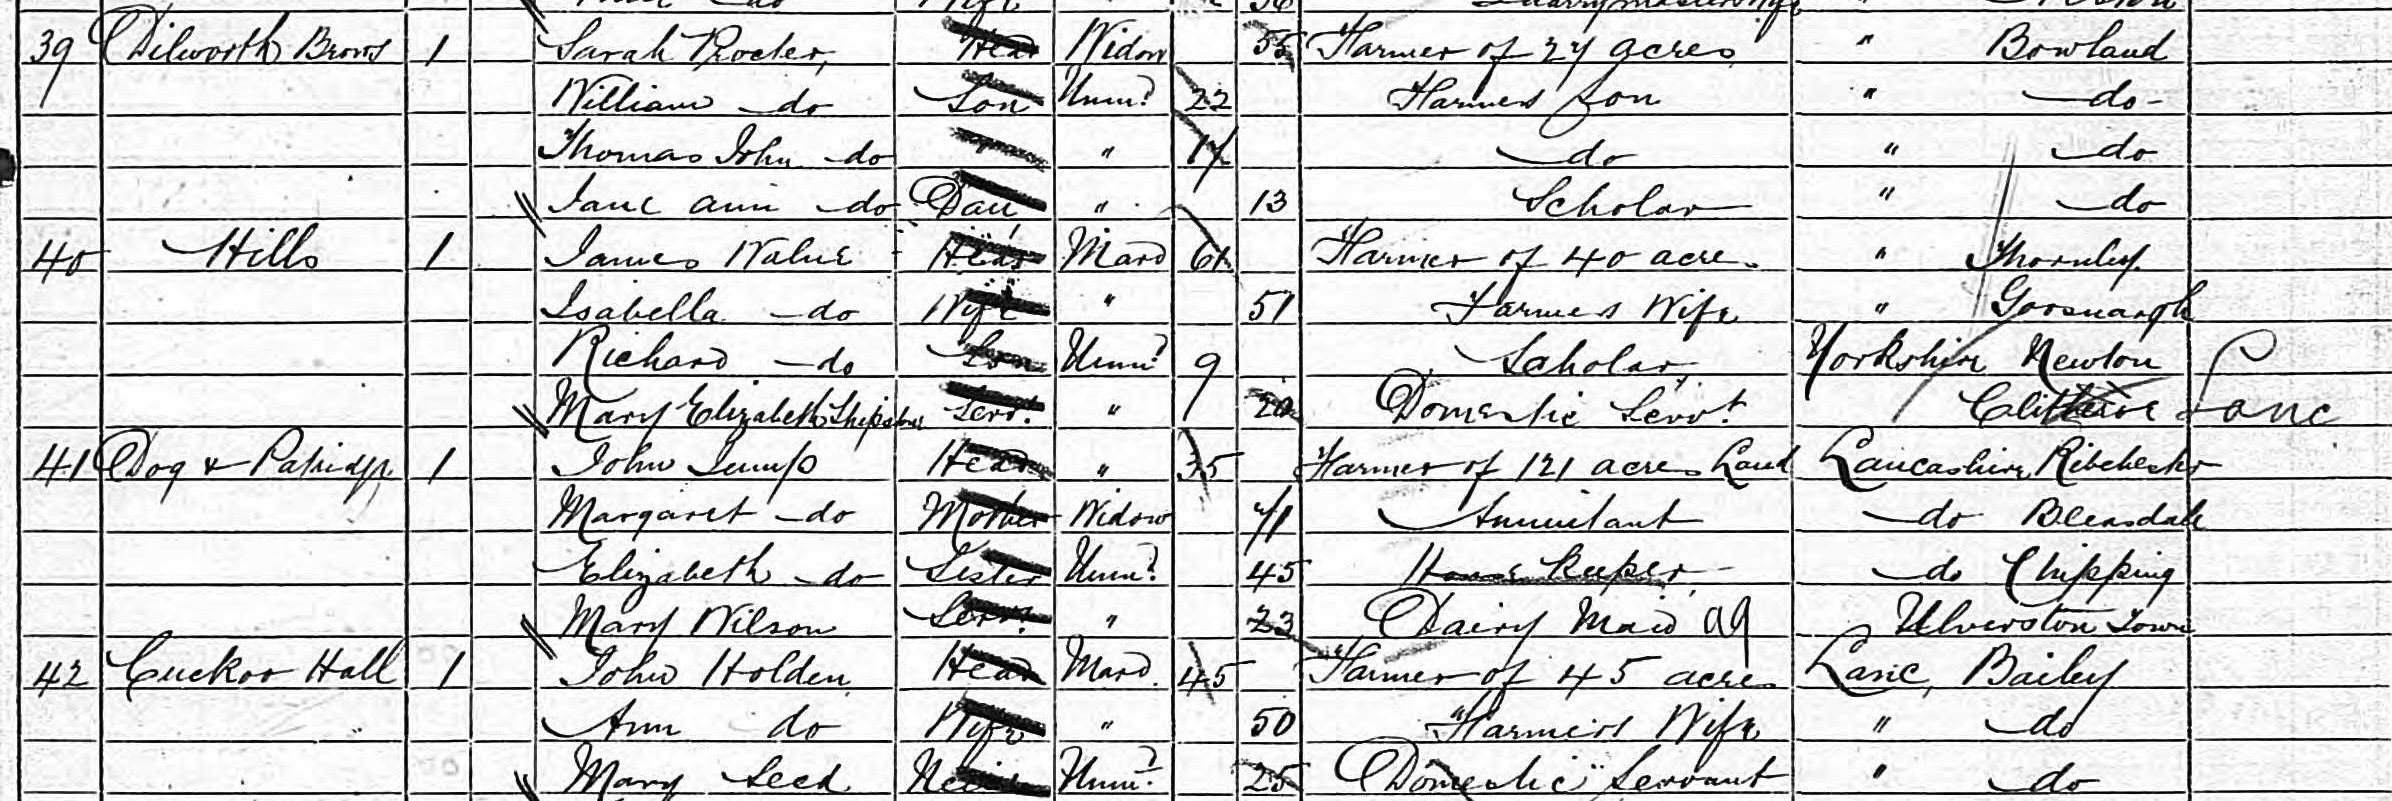 36
39 Dilworth Brows 1 Sarah Procter, Head Widow 55 Farmer of 27 acres " Bowland
William do Son Unm? 22 Farmers Son " do
Thomas John do " 17 do " do
Jane Ann do Dau " 13 Scholar " do
40 Hills 1 James Walne Head Mard 61 Farmer of 40 acre " Thornley
Isabella do Wife " 51 Farmers Wife " Goosnargh
Richard do Son Unm? 9 Scholar Yorkshire Newton
Mary Elizabeth Servt. " 20 Domestic Servt. Clitheroe Lanc
41 Dog & Patridge 1 John Jump Head " 35 Farmer of 121 acres Land Lancashire Ribchester
Margaret do Mother Widow 71 Annuitant do Bleasdale
Elizabeth do Sister Unm? 45 House Keeper do Chipping
Mary Wilson Servt. " 23 Dairy Maid ag Ulverston Town
42 Cuckoo Hall 1 John Holden Head Mard. 45 Farmer of 45 acres Lanc, Bailey
Ann do Wife " 50 Farmers Wife " do
Mary Seed Neice Unm? 25 Domestic Servant " do